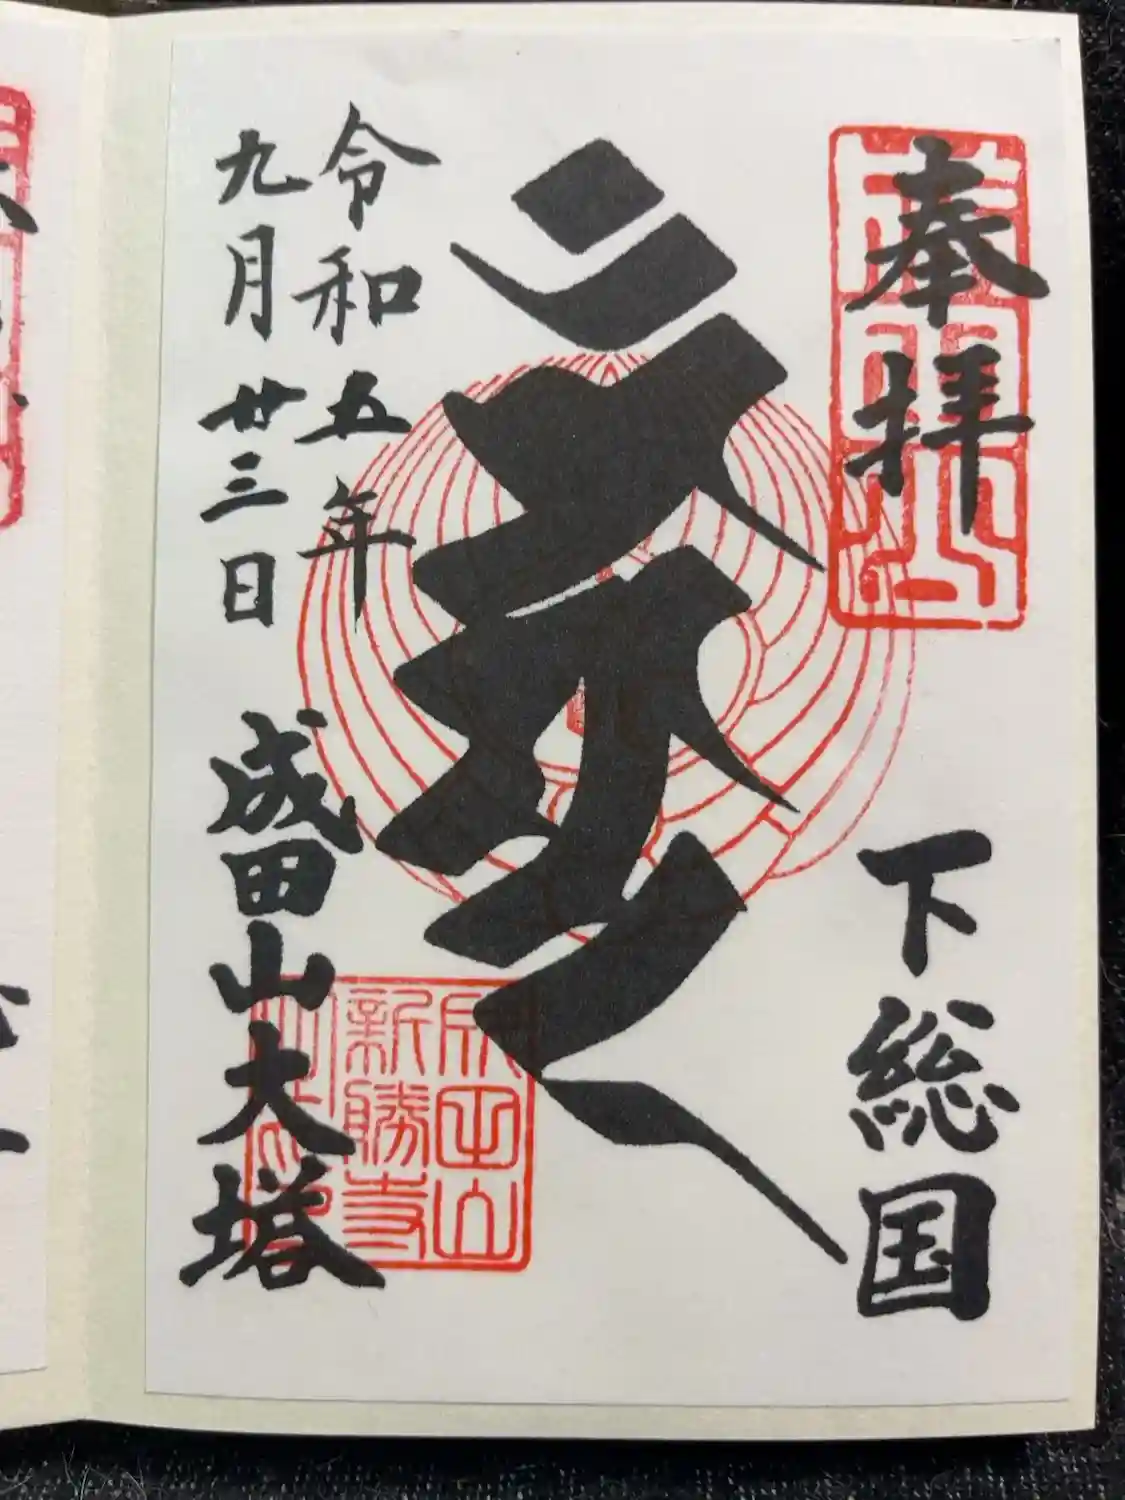 奉拝
成田山
下総国
令和五年
九月廿三日
成田山大塔
成田山
新勝寺